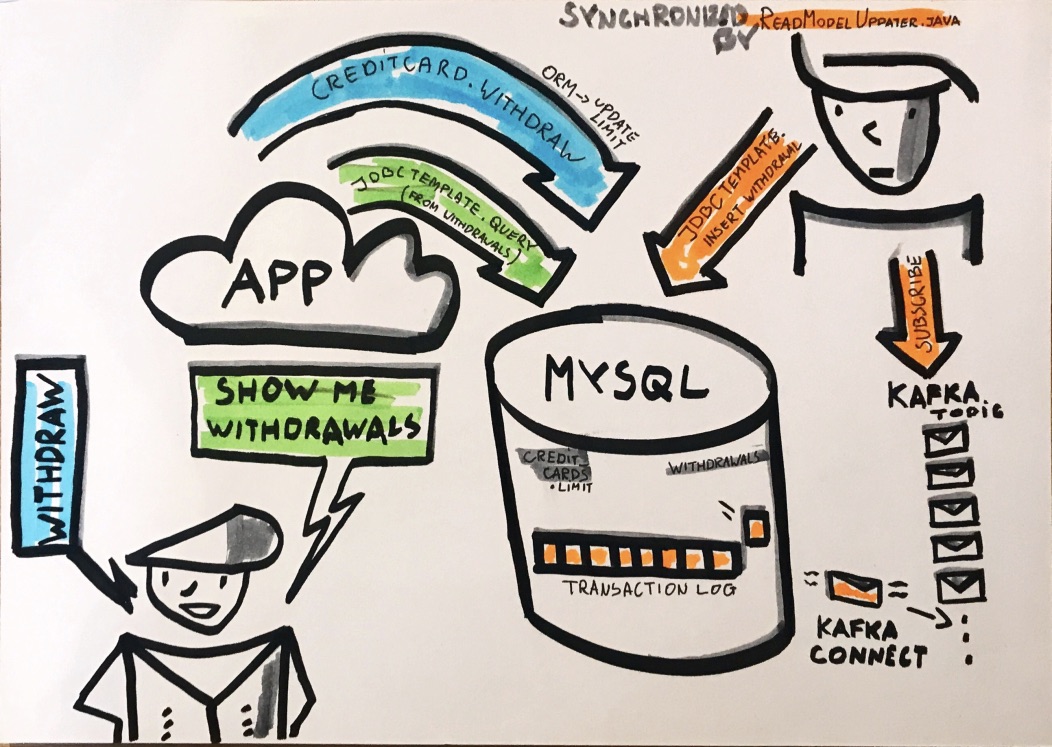 SYNCHRONIZED
BY READMODEL UPPATER.JAVA
CREDITCARD.WITHDRAW
ORM -> UPDATE
LIMIT
JDBC TEMPLATE.QUERY
(FROM WITHDRAWALS)
JDBC TEMPLATE.
INSERT WITHDRAWAL
APP
SUBSCRIBE
MYSQL
WITHDRAW
SHOW ME
WITHDRAWALS
KAFKA
TOPIC
CREDIT
CARDS
• LIMIT
WITHDRAWALS
TRANSACTION LOG
KAFKA
CONNECT